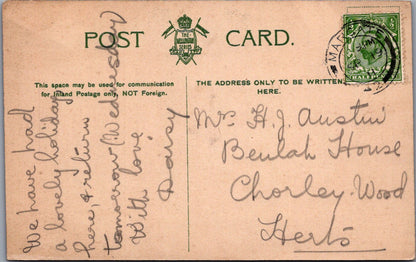 POST CARD.
THE
WELLINGTON
SERIES
This space may be used for communication
for Inland Postage only, NOT Foreign.
THE ADDRESS ONLY TO BE WRITTEN
HERE.
We have had
a lovely holiday
here, & return
tomorrow (Wednesday)
With love
Daisy
Mrs H. J. Austin
Beulah House
Chorley Wood
Herts